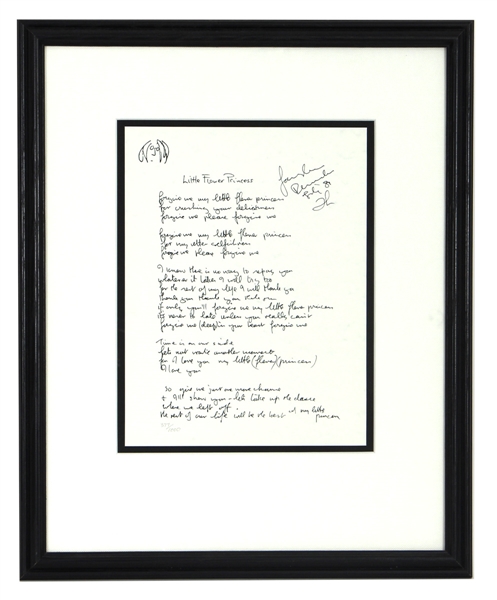 Little Flower Princess
forgive me my little flower princess
for crushing your delicateness
forgive me please forgive me
forgive me my little flower princess
for my utter selfishness
forgive me please forgive me
I know there is no way to repay you
whatever it takes I will try to
for the rest of my life I will thank you
thank you thank you thank you
if only you'll forgive me my little flower princess
its never to late unless you really can't
forgive me (deep) in your heart forgive me
Time is on our side
lets not waste another moment
for I love you my little (flower) (princess)
I love you
so give me just one more chance
& I'll show you - lets take up the dance
where we left off.
the rest of our life will be the best of my little
princess